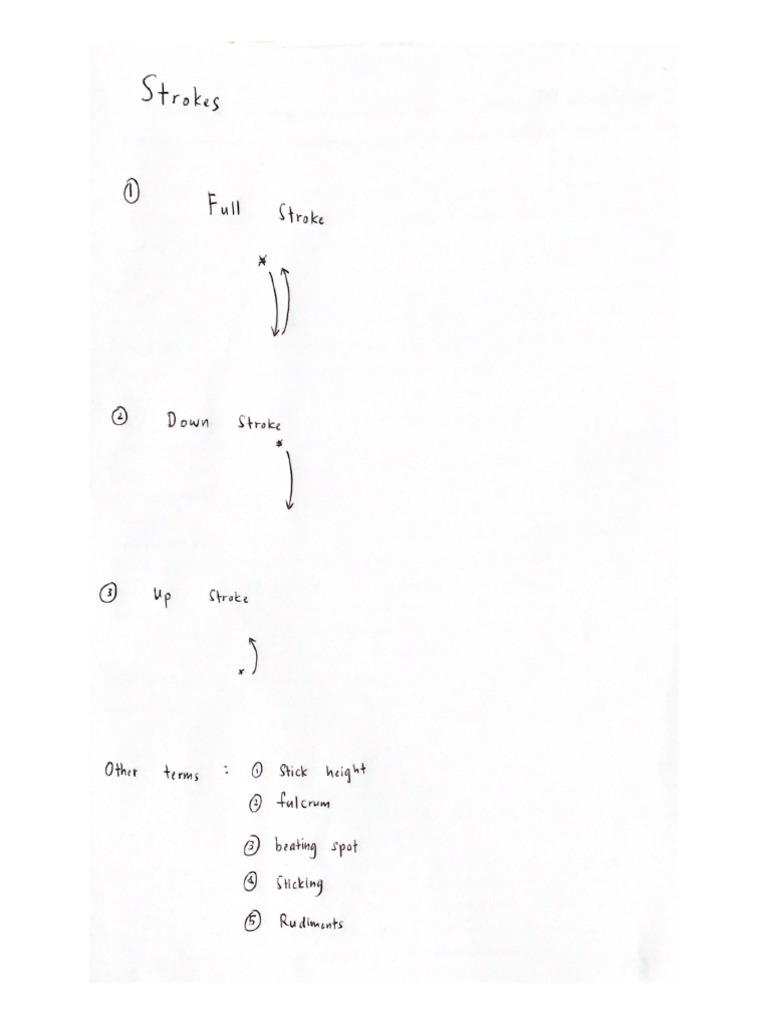 Strokes
① Full Stroke
② Down Stroke
③ Up Stroke
Other terms : ① Stick height
② fulcrum
③ beating spot
④ Sticking
⑤ Rudiments